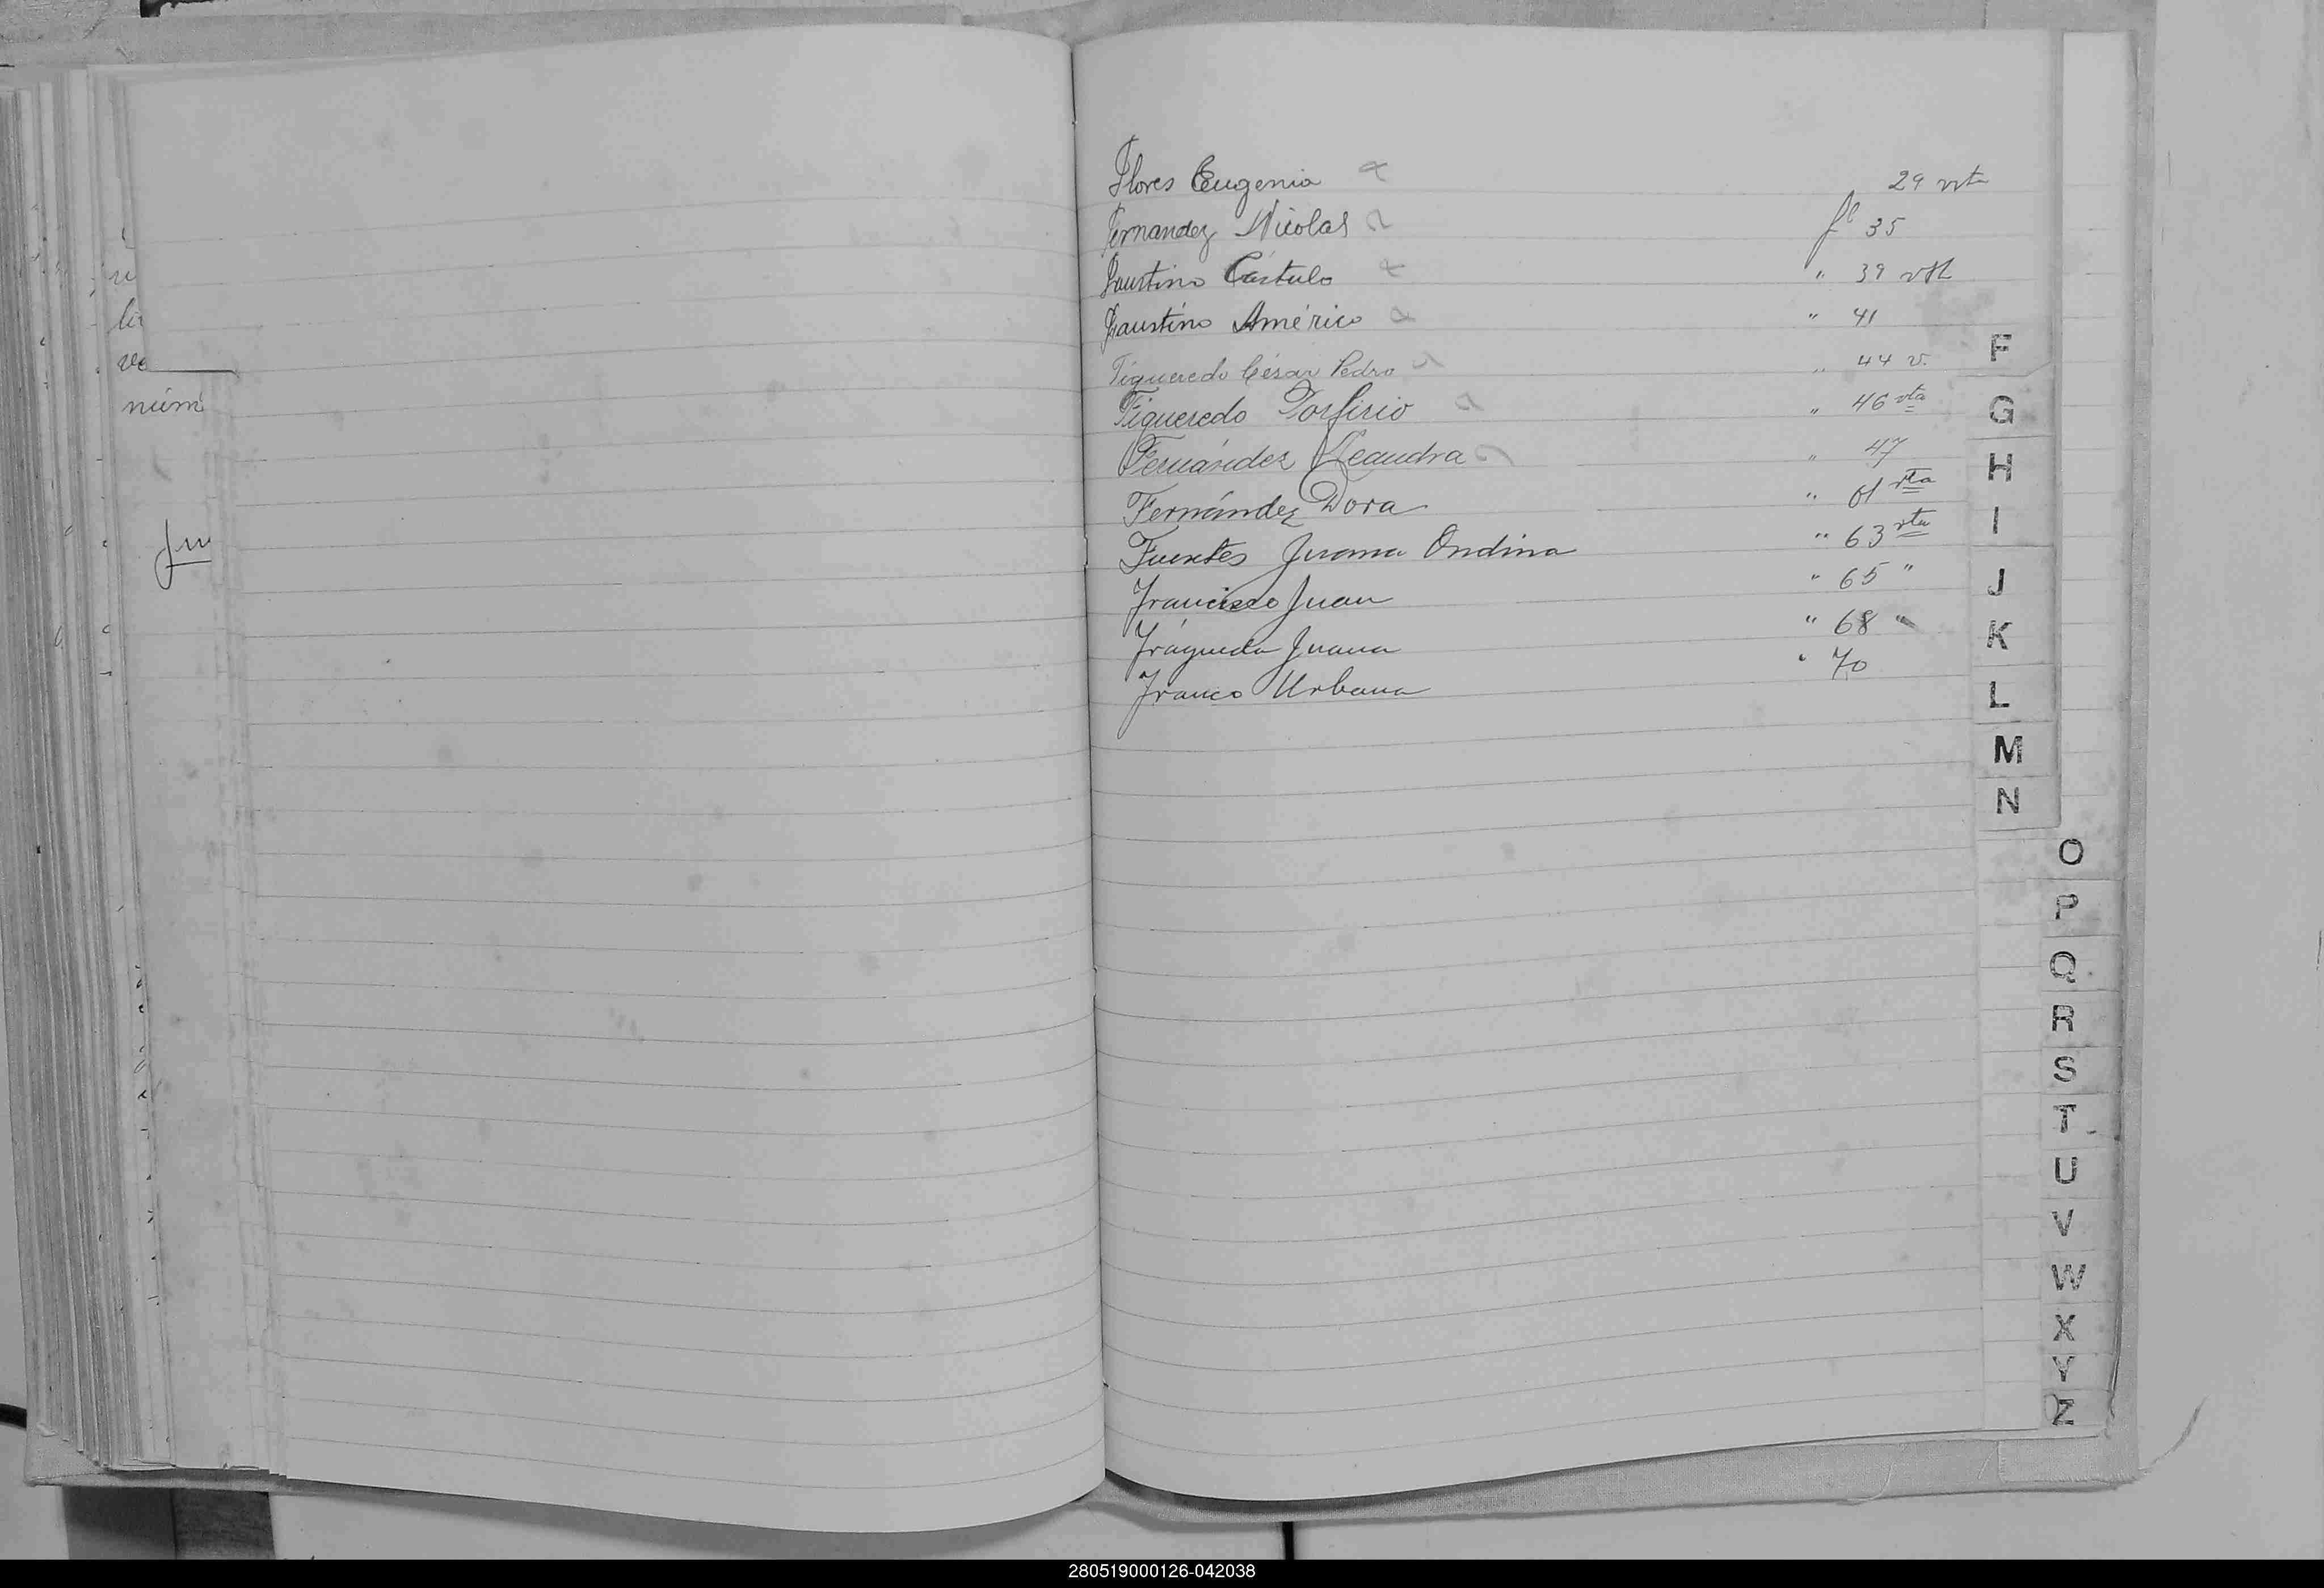 Flores Eugenia 29 vta
Fernandez Nicolas fl 35
Faustino Cástulo " 39 vta
Faustino Américo " 41
Figueredo César Pedro " 44 v.
Figueredo Porfirio " 46 vta
Fernández Leandra " 47
Fernández Dora " 61 vta
Fuentes Juana Ondina " 63 vta
Francisco Juan " 65 "
Fráqueda Juana " 68 "
Franco Urbana " 70
núm
F
G
H
I
J
K
L
M
N
O
P
Q
R
S
T
U
V
W
X
Y
Z
280519000126-042038